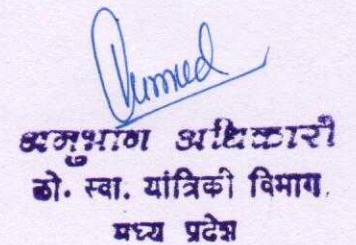 अनुभाग अधिकारी
लो. स्वा. यांत्रिकी विभाग
मध्य प्रदेश